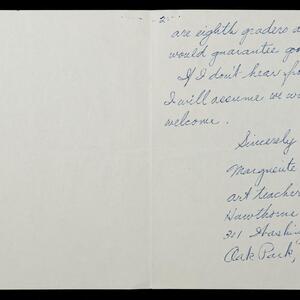 2
are eighth graders a
would guarantee goo
If I don't hear fro
I will assume we w
welcome.
Sincerely
Marguerite
art teacher
Hawthorne
301 Washin
Oak Park,